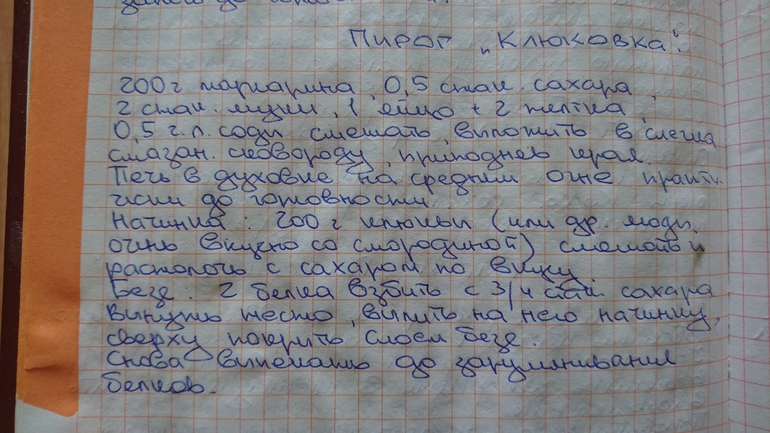 Пирог „Клюковка".
200 г маргарина, 0,5 стак. сахара,
2 стак. муки, 1 яйцо + 2 желтка,
0,5 г.л. соды смешать, выложить в слегка
смазан. сковороду, приподнев края.
Печь в духовке на среднем огне практи
чески до готовности.
Начинка: 200 г клюквы (или др. ягоды,
очень вкусно со смородиной) смешать и
растолочь с сахаром по вкусу.
Безе: 2 белка взбить с 3/4 стак. сахара
Вынуть тесто, вылить на него начинку,
сверху покрыть слоем безе.
Снова выпекать до зарумянивания
белков.